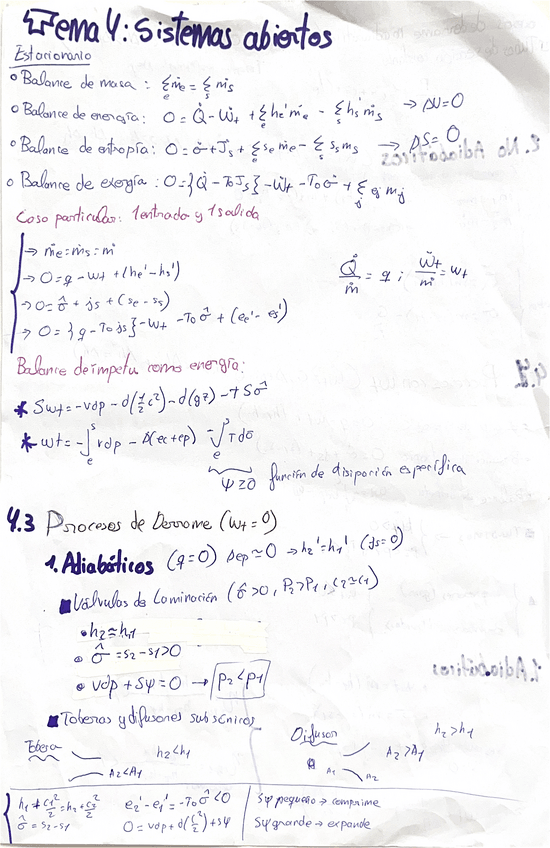 Tema 4: Sistemas abiertos
Estacionario
o Balance de masa : Σe ṁe = Σs ṁs
o Balance de energía: 0 = Q̇ - Ẇt + Σe he'ṁe - Σs hs'ṁs → ΔU=0
o Balance de entropía: 0 = σ̇ + J̇s + Σe se ṁe - Σs ss ṁs → ΔS=0
o Balance de exergía : 0={Q̇ - T0J̇s} - Ẇt - T0σ̇ + Σj ej ṁj
Caso particular: 1 entrada y 1 salida
→ ṁe = ṁs = ṁ
→ 0 = q - wt + (he' - hs')
Q̇/ṁ = q ; Ẇt/ṁ = wt
→ 0 = σ̂ + js + (se - ss)
→ 0 = {q - T0 js} - wt - T0 σ̂ + (ee' - es')
Balance de impetu como energía:
* δwt = -vdp - d(1/2 c²) - d(gz) - Tδσ̂
* wt = -∫e^s vdp - Δ(ec+ep) - ∫e^s Tdσ
ψ≥0 función de disipación específica
4.3 Procesos de Derrame (wt=0)
1. Adiabáticos (q=0) Δep≃0 → h2'=h1' (js=0)
■ Válvulas de Laminación (σ̂>0, P2>P1, c2≃c1)
• h2≃h1
• σ̂ = s2-s1>0
• vdp + δψ=0 → p2<p1
■ Toberas y difusores subsónicos
Tobera h2<h1 A2<A1
Difusor h2>h1 A2>A1 A1 A2
h1 + c1²/2 = h2 + c2²/2 e2' - e1' = -T0σ̂<0 δψ pequeño → comprime
σ̂ = s2-s1 0 = vdp + d(c²/2) + δψ δψ grande → expande